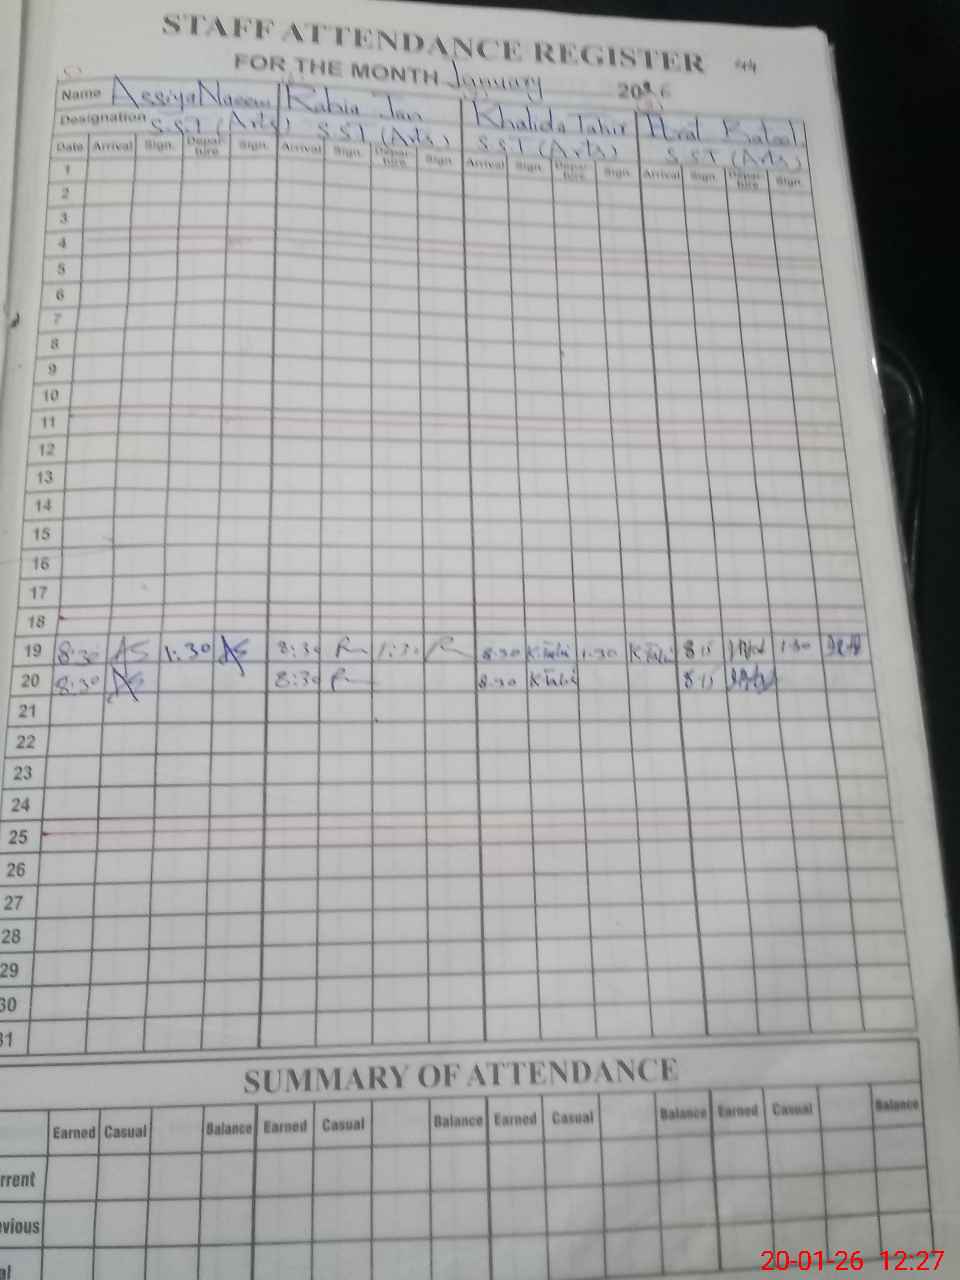 STAFF ATTENDANCE REGISTER 44
FOR THE MONTH January 2026
Name Assiya Naeem Rabia Jan Khalida Tahir Batool
Designation S.ST (Arts) S.ST (Arts) S ST (Arts) S.ST (Arts)
Date Arrival Sign. Depar-ture Sign. Arrival Sign. Depar-ture Sign. Arrival Sign. Depar-ture Sign. Arrival Sign. Depar-ture Sign.
1
2
3
4
5
6
7
8
9
10
11
12
13
14
15
16
17
18
19 8:30 AS 1:30 AS 8:30 R 1:30 R 8:30 1:30 8:15 1:30
20 8:30 AS 8:30 R 8:30 8:15
21
22
23
24
25
26
27
28
29
30
31
SUMMARY OF ATTENDANCE
Earned Casual Balance Earned Casual Balance Earned Casual Balance Earned Casual Balance
rrent
evious
al
20-01-26 12:27